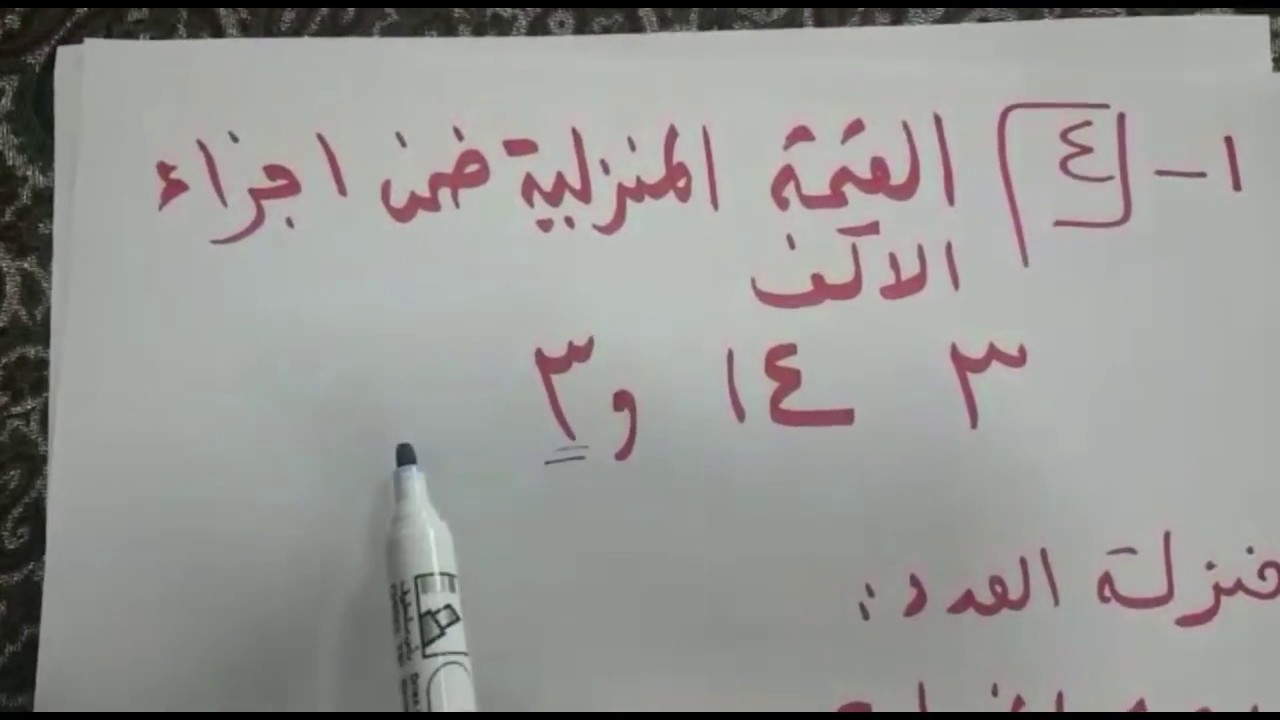 ١- ٤ القيمة المنزلية ضمن اجزاء
الالف
٣ ١٤ و٣
منزلة العدد :